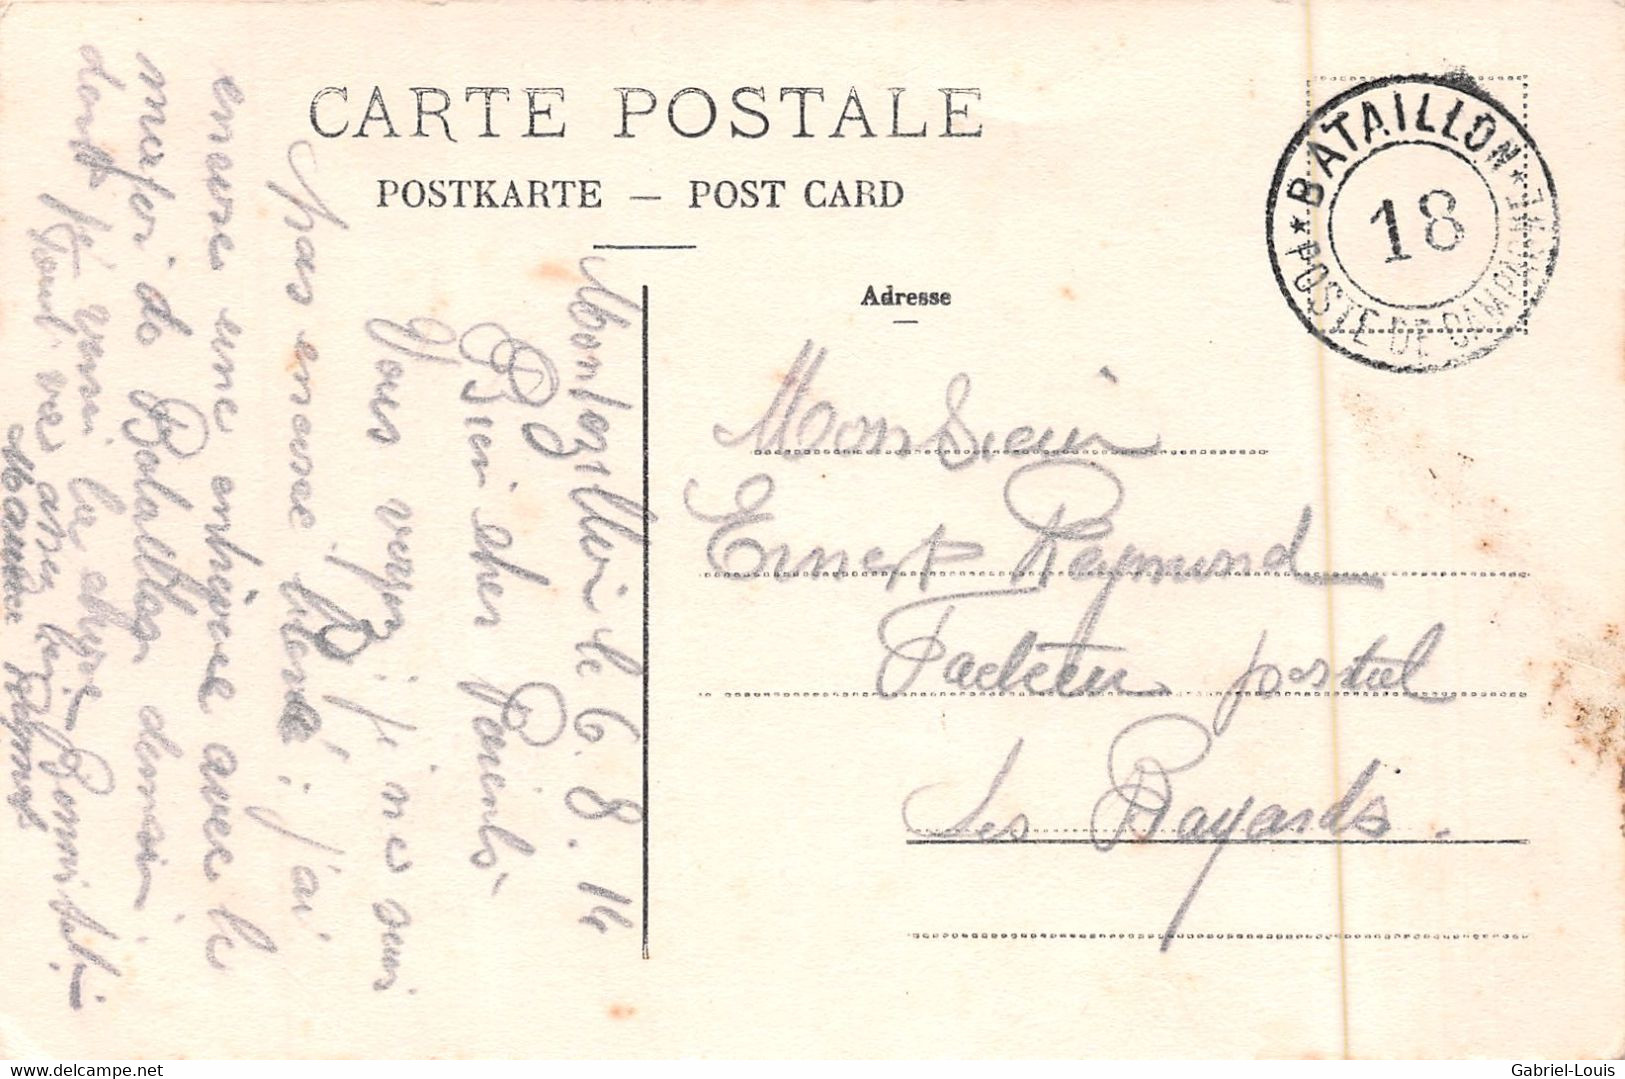 CARTE POSTALE
POSTKARTE — POST CARD
Adresse
★ BATAILLON ★
18
POSTE DE CAMPAGNE
Monsieur
Ernest Reymond
Facteur postal
Les Bayards.
Montezillon le 6. 8. 14
Bien cher Parents
Vous voyez je ne suis
pas encore : j'ai
encore une avec le
major de Bataillon demain
dont
Tout
Gabriel-Louis